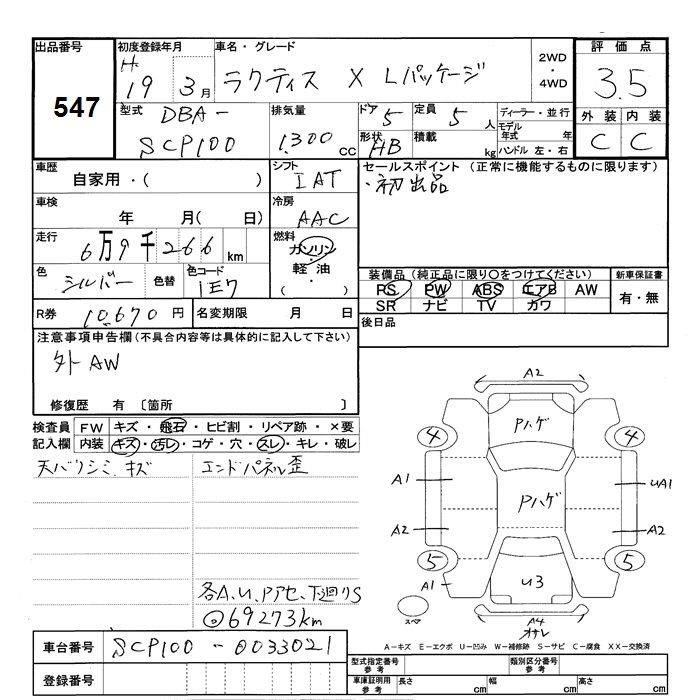 出品番号 初度登録年月 車名・グレード 2WD・4WD 評価点
547 H19 3月 ラクティス X Lパッケージ 3.5
型式 DBA- 排気量 ドア 5 定員 5人 ディーラー・並行 外装 内装
SCP100 1.300cc 形状 HB 積載 kg モデル年式 年 ハンドル 左・右 C C
車歴 自家用・( ) シフト IAT セールスポイント (正常に機能するものに限ります)
・初出品
車検 年 月( 日) 冷房 AAC
走行 6万9千266km 燃料 ガソリン・軽油・( )
色 シルバー 色替 色コード 1E7
装備品(純正品に限り○をつけてください) 新車保証書
PS PW ABS エアB AW 有・無
SR ナビ TV カワ
R券 10,670円 名変期限 月 日 後日品
注意事項申告欄(不具合内容等は具体的に記入して下さい)
外AW
修復歴 有 〔箇所 〕
検査員記入欄 FW キズ・飛石・ヒビ割・リペア跡・×要
内装 キズ・汚レ・コゲ・穴・スレ・キレ・破レ
天バリシミ、キズ エンドパネル歪
各A、U、Pアセ、下廻りS
◎69273km
A2
Pハゲ
4 4
A1 UA1
Pハゲ
A2 A2
5 5
A1 U3
スペア A4
オサレ
A-キズ E-エクボ U-凹み W-補修跡 S-サビ C-腐食 XX-交換済
車台番号 SCP100-0033021
型式指定番号 参考 類別区分番号 参考
登録番号 車庫証明用 参考 長さ cm 幅 cm 高さ cm